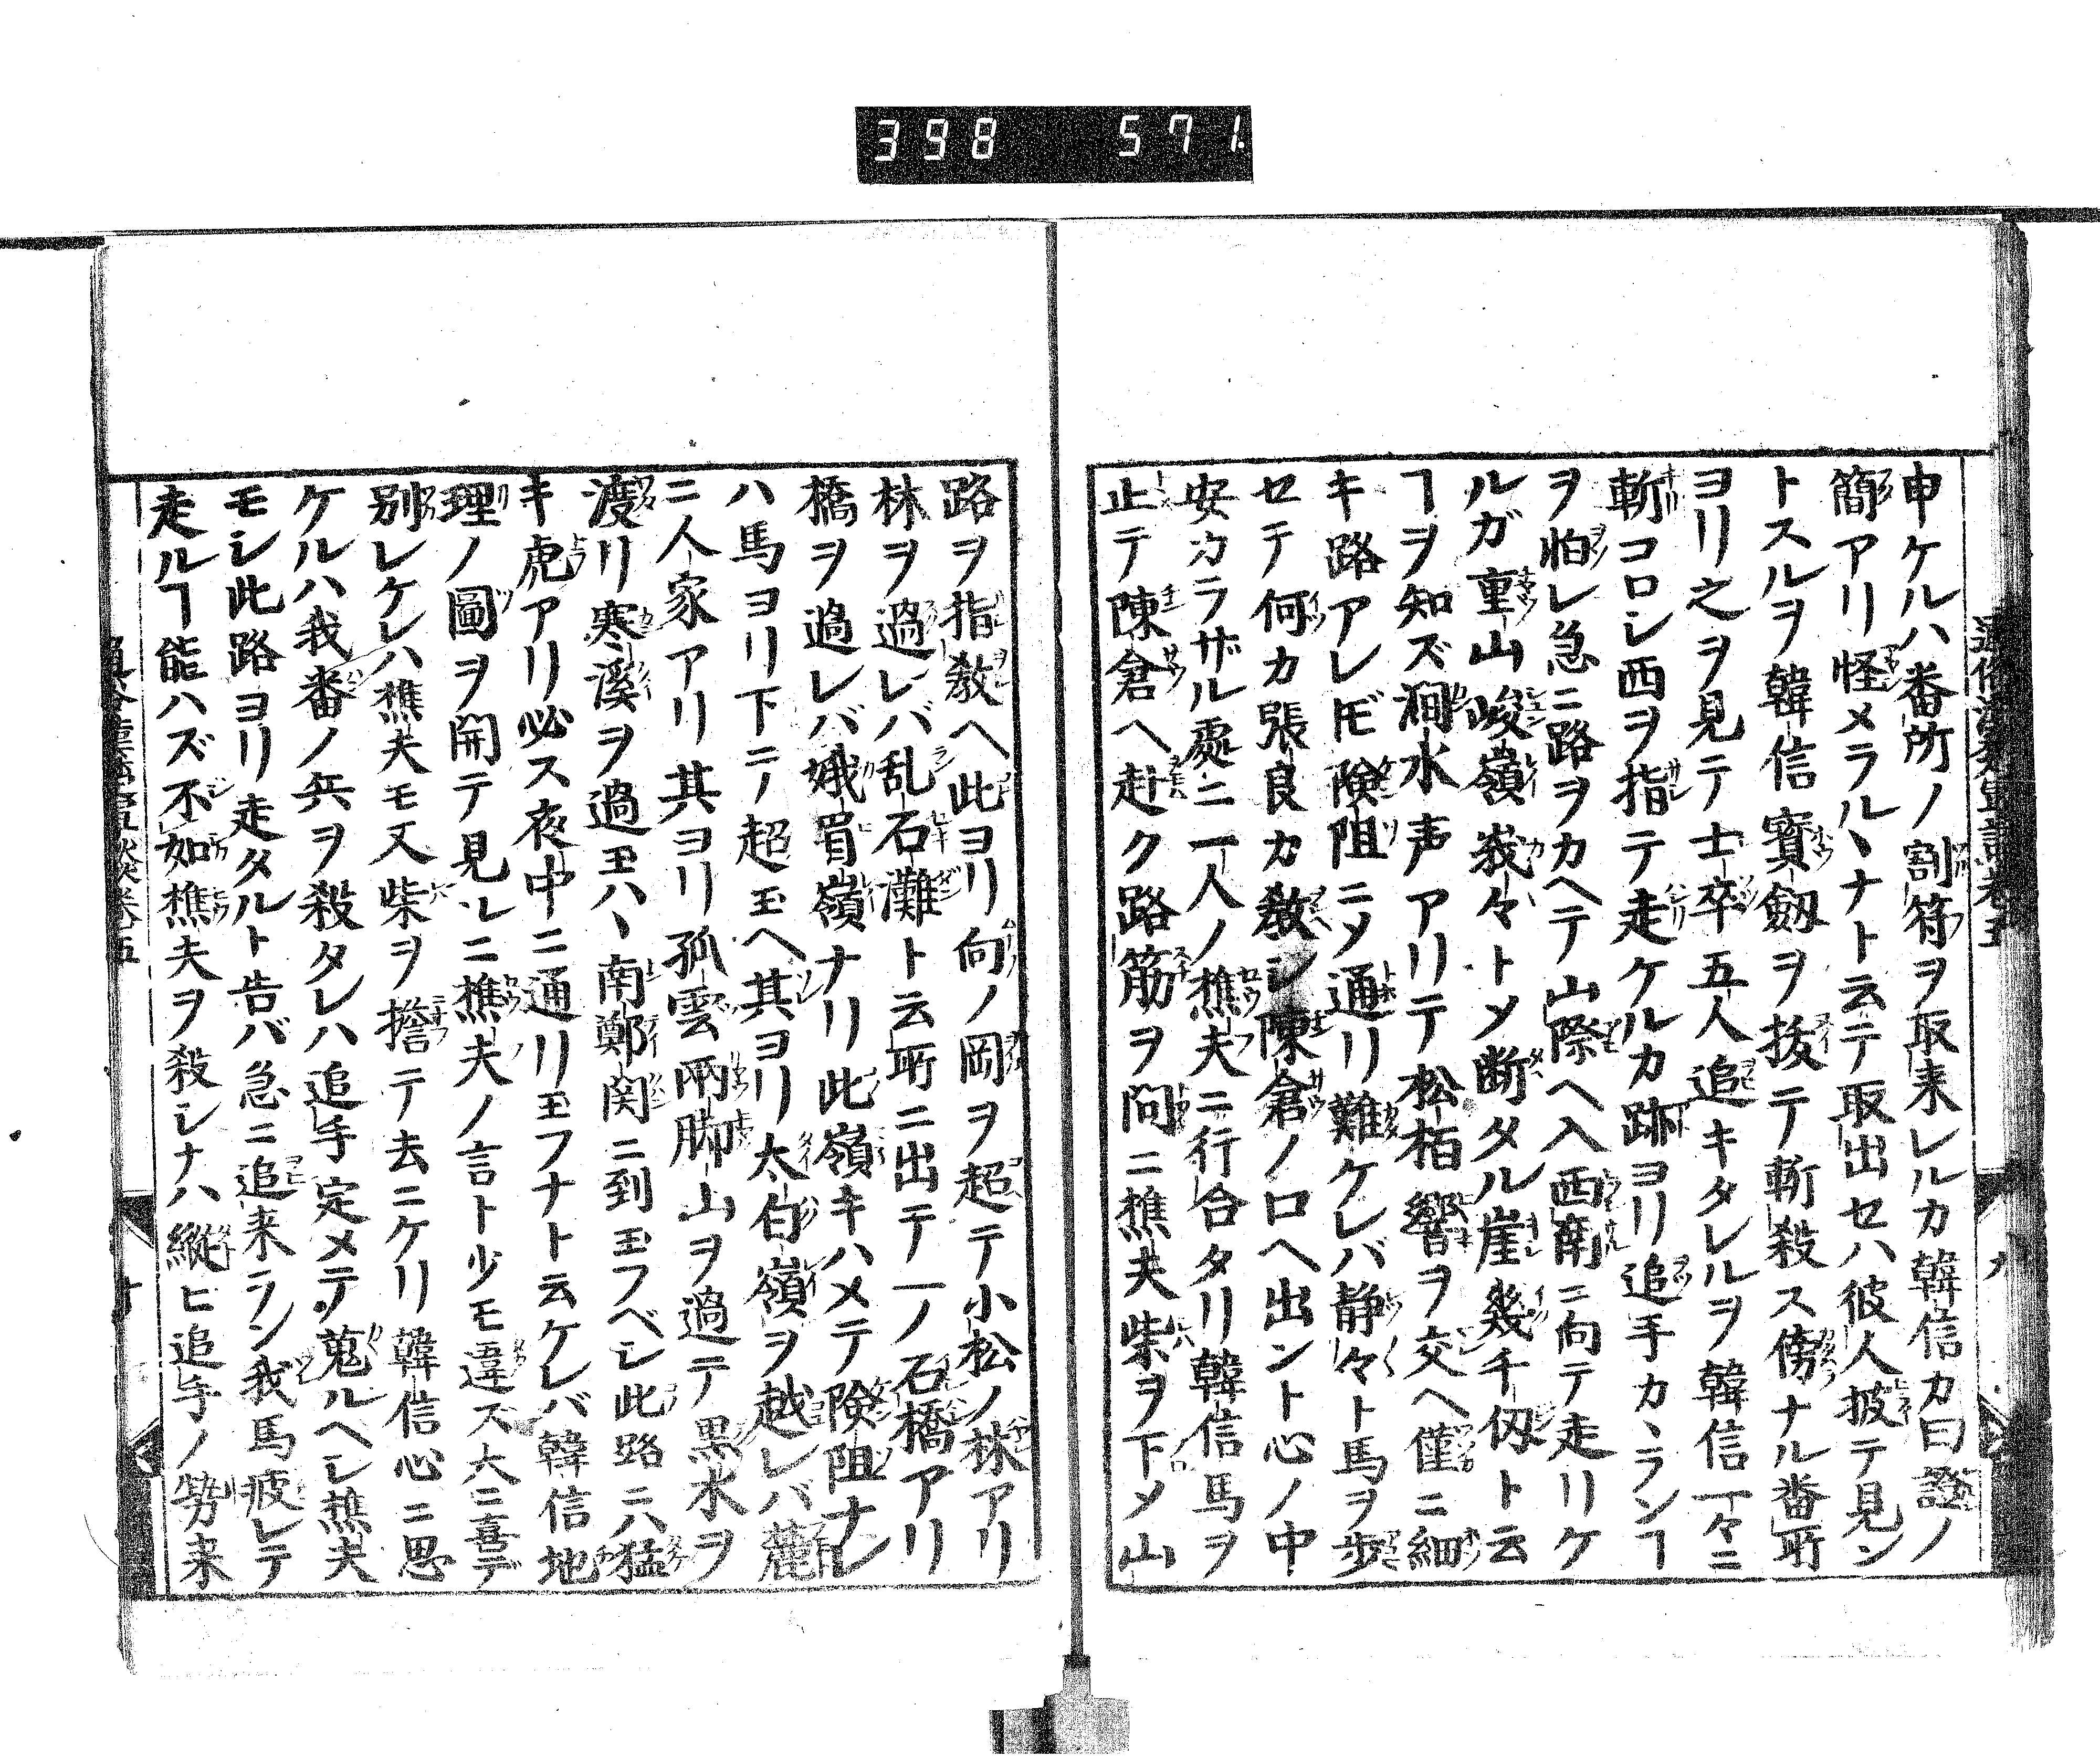 398 571
申ケルハ番所ノ割符ヲ取来レルカ韓信カ曰證ノ
簡アリ怪メラルヽナト云テ取出セハ彼人披テ見ン
トスルヲ韓信寳劔ヲ抜テ斬殺ス傍ナル番所
ヨリ之ヲ見テ士卒五人追キタレルヲ韓信一々ニ
斬コロシ西ヲ指テ走ケルカ跡ヨリ追手カヽランヿ
ヲ怕レ急ニ路ヲカヘテ山際ヘ入西南ニ向テ走リケ
ルガ重山峻嶺峩々トメ断タル崖幾千仭ト云
ヿヲ知ズ澗水声アリテ松栢響ヲ交ヘ僅ニ細
キ路アレ𪜈険阻ニメ通リ難ケレバ静々ト馬ヲ歩
セテ何カ張良カ教シ陳倉ノ口ヘ出ント心ノ中
安カラザル處ニ一人ノ樵夫ニ行合タリ韓信馬ヲ
止テ陳倉ヘ赴ク路筋ヲ問ニ樵夫柴ヲ下メ山
路ヲ指教ヘ此ヨリ向ノ岡ヲ超テ小松ノ林アリ
林ヲ過レバ乱石灘ト云所ニ出テ一ノ石橋アリ
橋ヲ過レバ娥眉嶺ナリ此嶺キハメテ険阻ナレ
ハ馬ヨリ下テ超玉ヘ其ヨリ太白嶺ヲ越レバ麓
ニ人家アリ其ヨリ孤雲兩脚山ヲ過テ黒水ヲ
渡リ寒溪ヲ過玉ハヽ南鄭関ニ到玉フベシ此路ニハ猛
キ虎アリ必ス夜中ニ通リ玉フナト云ケレバ韓信地
理ノ圖ヲ開テ見ルニ樵夫ノ言ト少モ違ズ大ニ喜テ
別レケレハ樵夫モ又柴ヲ擔テ去ニケリ韓信心ニ思
ケルハ我番ノ兵ヲ殺タレハ追手定メテ蒐ルヘシ樵夫
モシ此路ヨリ走タルト告バ急ニ追来ラン我馬疲レテ
走ルヿ能ハズ不如樵夫ヲ殺シナハ縦ヒ追手ノ勢来